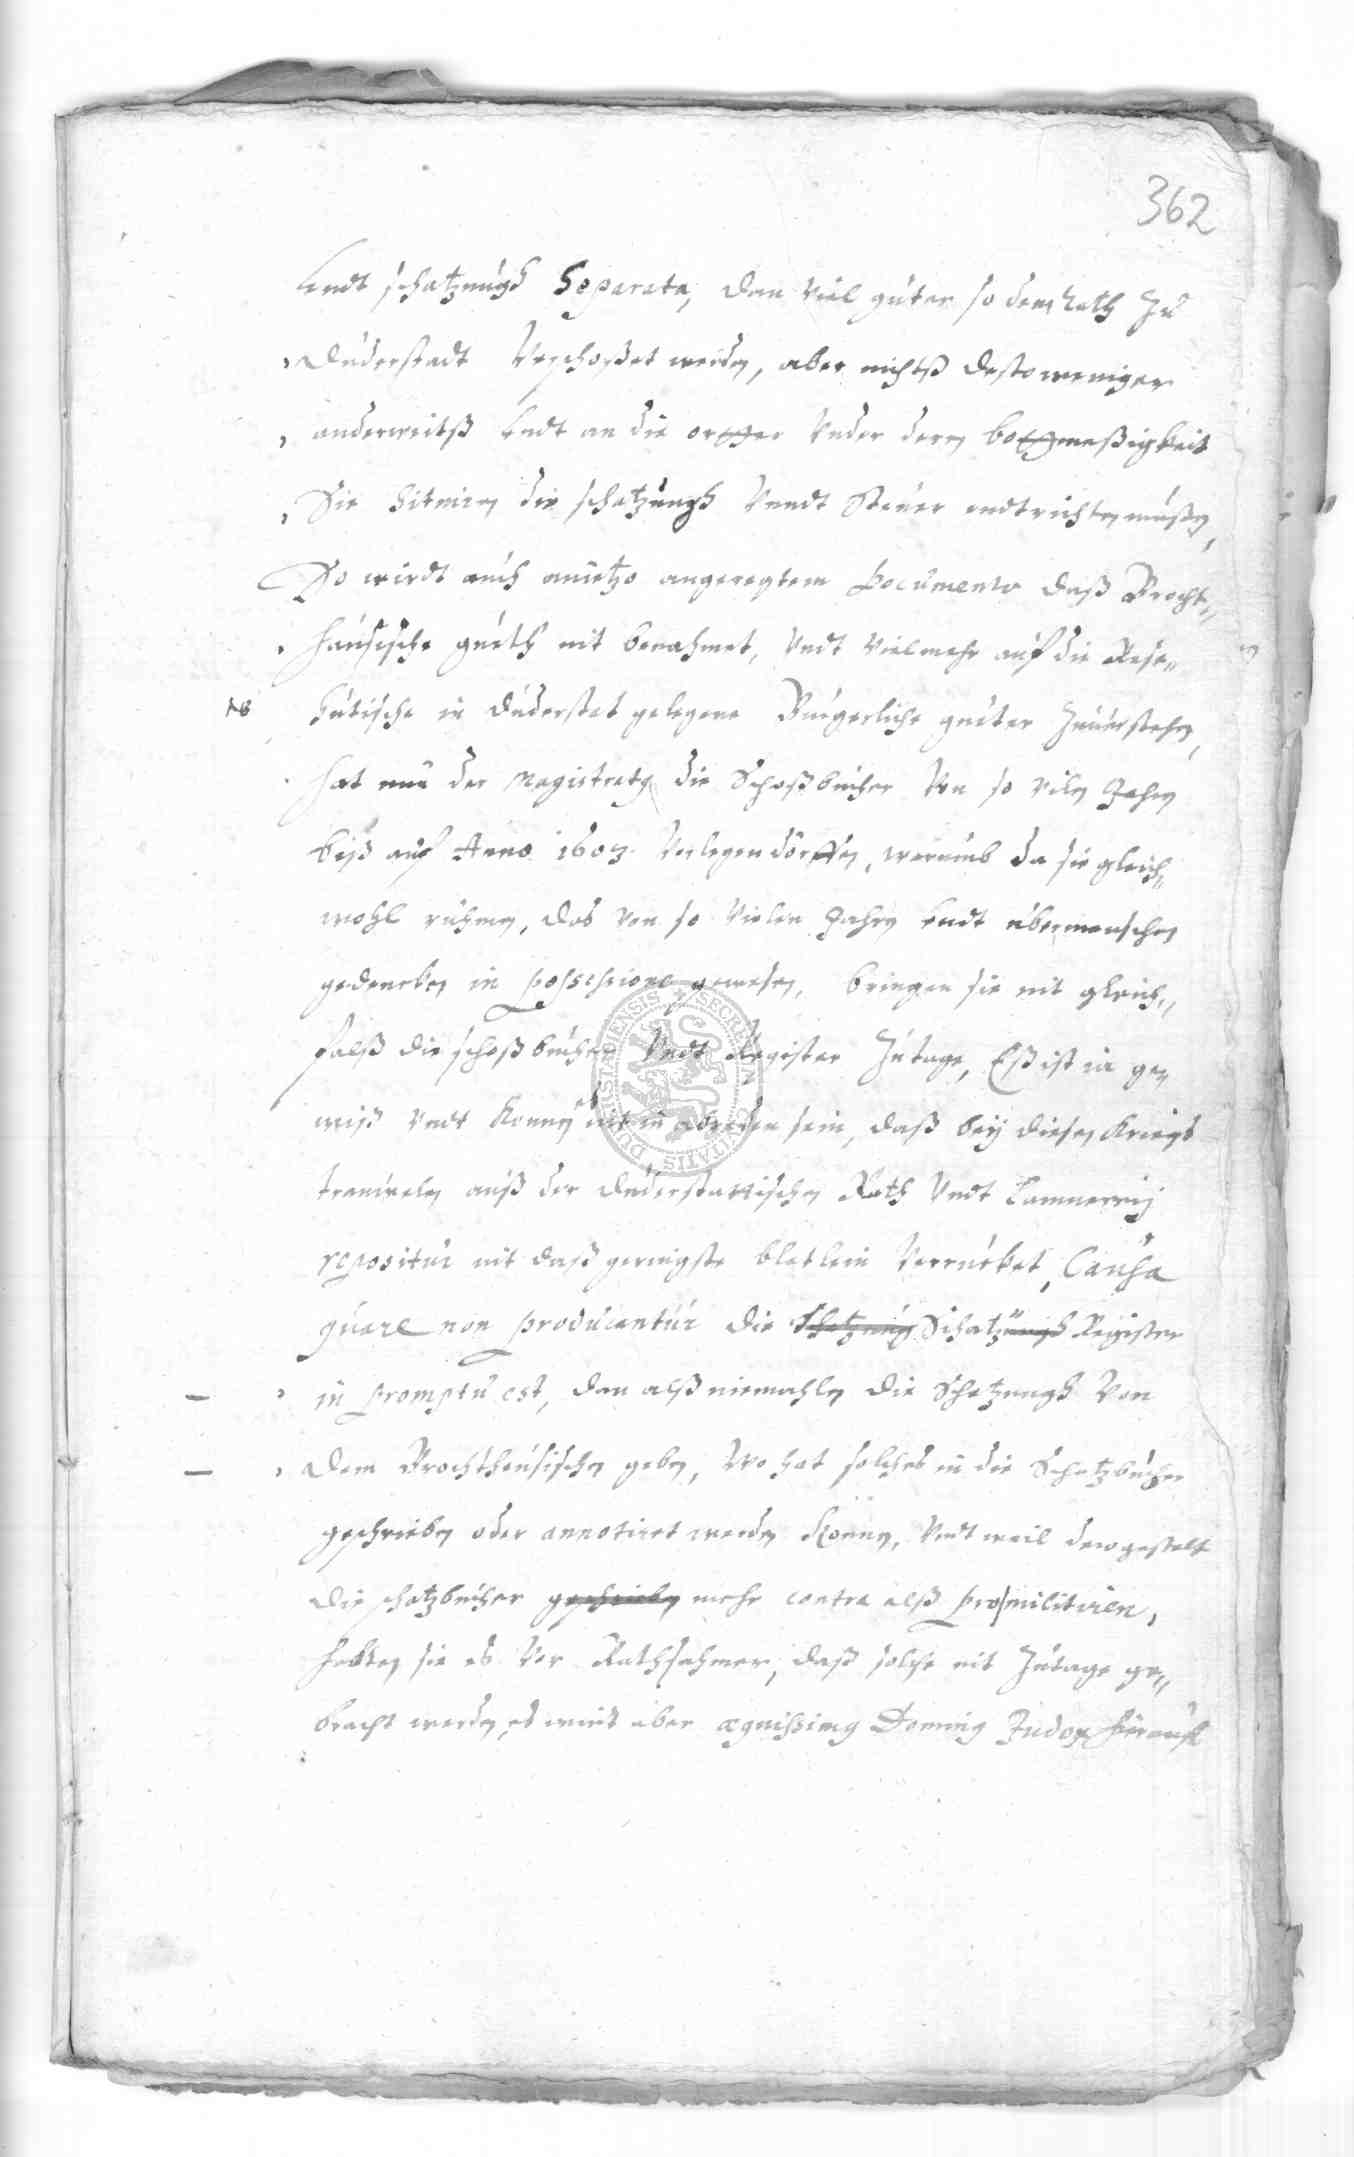 362
Undt schatzungh Separata, dan viel güter so dem Rath Zu
Duderstadt Verschoßet werden, aber nichts destoweniger
anderweitß Undt an die orther Under deren bottmeßigkeit
Sie die schatzungh Unndt Steuer endtrichten müßen,
So wirdt auch anietzo angeregtem Documento daß Brocht„
haußische gueth nit benahmet, Undt vielmehr auf die
NB in Duderstat gelegene Bürgerliche güeter Zuuerstehen,
hat nun der Magistratus die Schoßbücher Von so vilen Jahren
biß auf Anno 1603 Vorlegen dörffen, warumb da sie gleich„
wohl rühmen, das von so Vielen Jahren Undt übermenschen
gedencken in possessione gewesen, bringen sie nit gleich„
falß die schoßbücher Undt Register Zu tage, Eß ist ia ge„
wiß Undt Können nit in abreden sein, daß bey diesen Kriegs
auß der Duderstattischen Rath Undt Cammerey
repositur nit daß geringste bletlein Verrücket, Causa
quare non producantur die Schatzung Schatzungh Register
in promptu est, dan alß niemahlen die Schatzungh Von
dem Brochtheusischen geben, Wo hat solches in die Schatzbücher
geschrieben oder annotiret werden Können, Undt weil dergestalt
die schatzbücher geschrieben mehr contra alß pro militiren,
halten sie es Vor Rathsahmer, daß solche nit Zu tage ge„
bracht werden, es wird aber æquissimus Dominus Judex hierauß
SECRETUM CIVITATIS DUDERSTADIENSIS